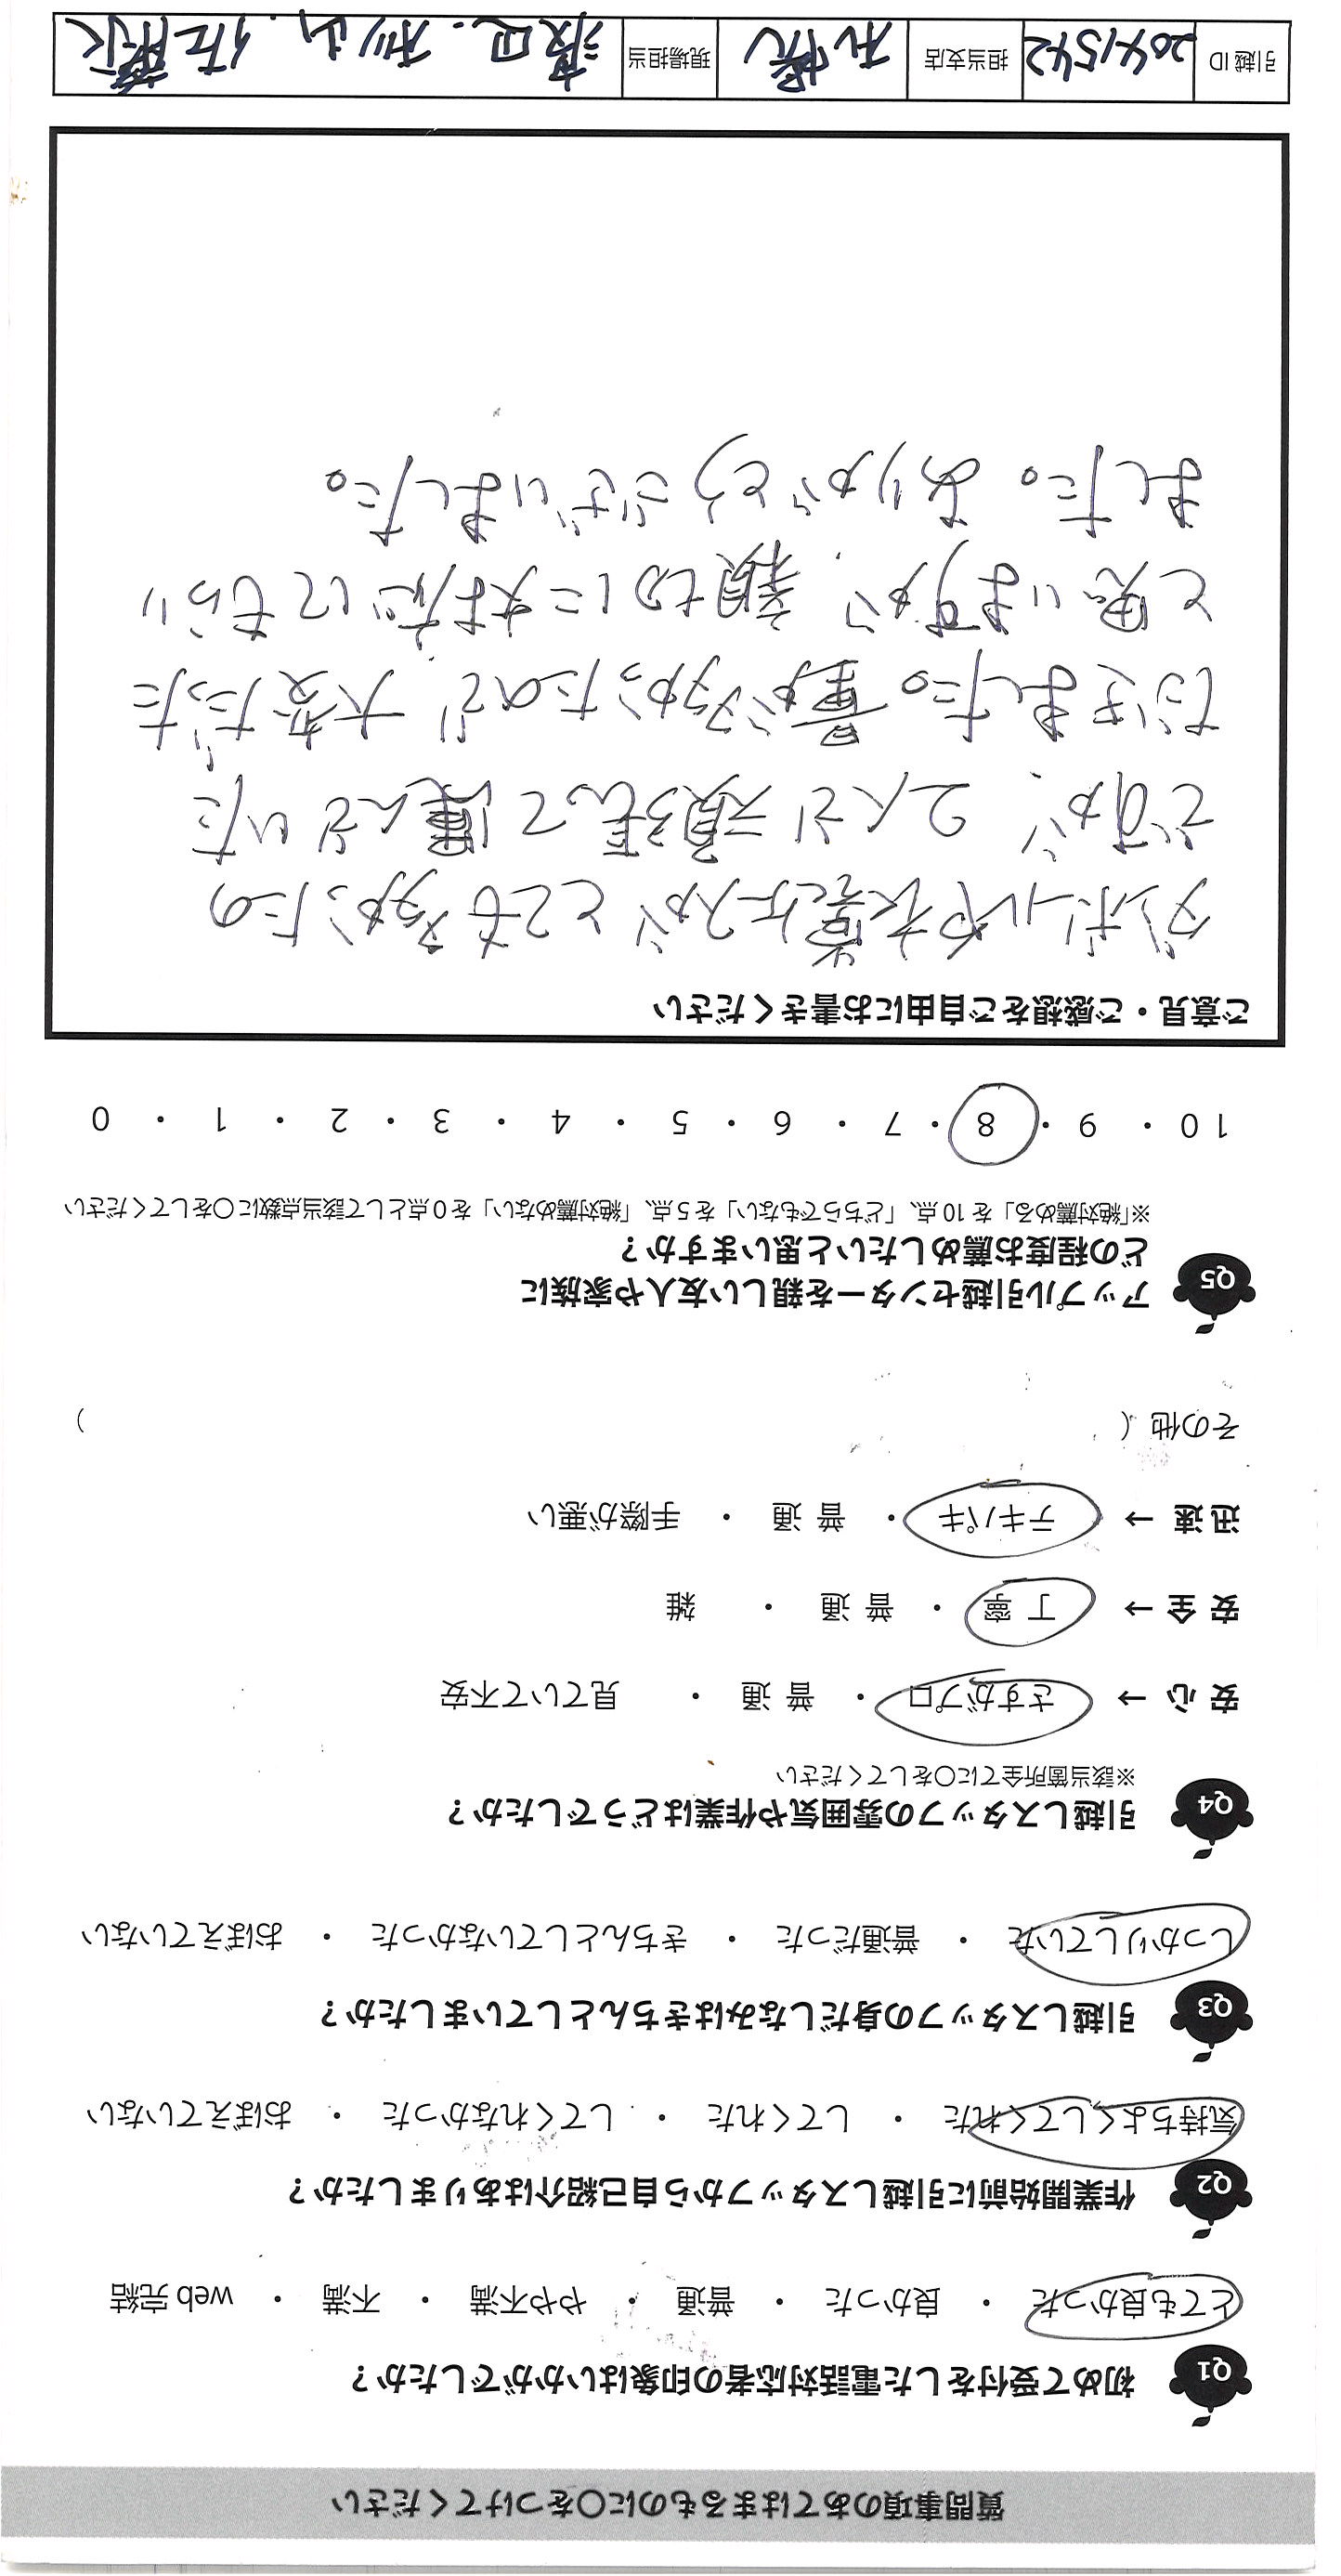 質問事項のあてはまるものに〇をつけてください
Q1 初めて受付をした電話対応者の印象はいかがでしたか？
とても良かった ・ 良かった ・ 普通 ・ やや不満 ・ 不満 ・ web 完結
Q2 作業開始前に引越しスタッフから自己紹介はありましたか？
気持ちよくしてくれた ・ してくれた ・ してくれなかった ・ おぼえていない
Q3 引越しスタッフの身だしなみはきちんとしていましたか？
しっかりしていた ・ 普通だった ・ きちんとしていなかった ・ おぼえていない
Q4 引越しスタッフの雰囲気や作業はどうでしたか？
※該当箇所全てに〇をしてください
安心 → さすがプロ ・ 普通 ・ 見ていて不安
安全 → 丁寧 ・ 普通 ・ 雑
迅速 → テキパキ ・ 普通 ・ 手際が悪い
その他（ ）
Q5 アップル引越センターを親しい友人や家族に
どの程度お薦めしたいと思いますか？
※「絶対薦める」を 10 点、「どちらでもない」を 5 点、「絶対薦めない」を 0 点として該当点数に〇をしてください
10 ・ 9 ・ 8 ・ 7 ・ 6 ・ 5 ・ 4 ・ 3 ・ 2 ・ 1 ・ 0
ご意見・ご感想をご自由にお書きください
ダンボールや衣装ケースがとても多かったの
ですが、2人で頑張って運んでいた
だきました。量が多かったので、大変だった
と思いますが、親切に対応してもらい
ました。ありがとうございました。
引越 ID 2041542 担当支店 札幌 現場担当 渡辺. 杉山. 佐藤